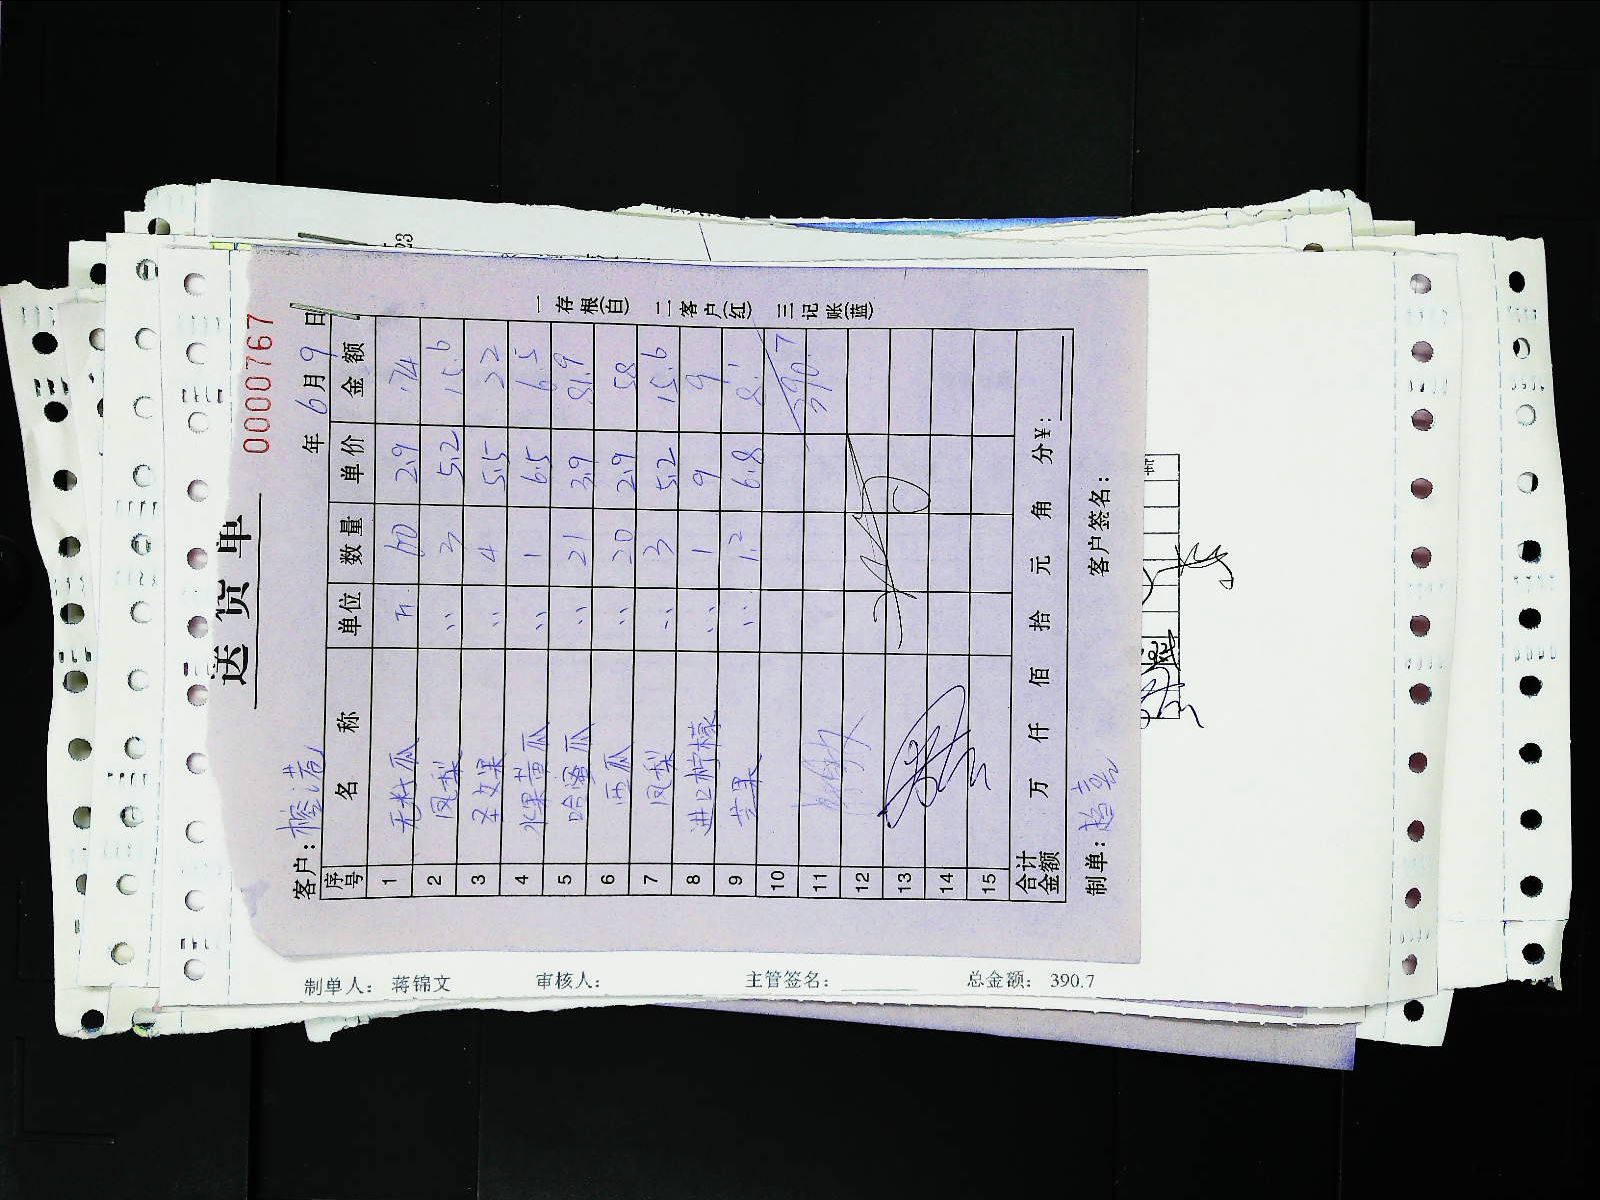 送货单
0000767
客户: 年 6月9日
序号 名称 单位 数量 单价 金额
1 无籽瓜 斤 60 2.9 174
2 凤梨 〃 3 5.2 15.6
3 圣女果 〃 4 5.5 22
4 水果黄瓜 〃 1 6.5 6.5
5 哈密瓜 〃 21 3.9 81.9
6 西瓜 〃 20 2.9 58
7 凤梨 〃 3 5.2 15.6
8 进口柠檬 〃 1 9 9
9 芒果 〃 1.2 6.8 8.1
10
11 390.7
12
13
14
15
合计金额 万 仟 佰 拾 元 角 分¥:
制单: 客户签名:
一存根(白) 二客户(红) 三记账(蓝)
制单人: 蒋锦文 审核人: 主管签名: 总金额: 390.7